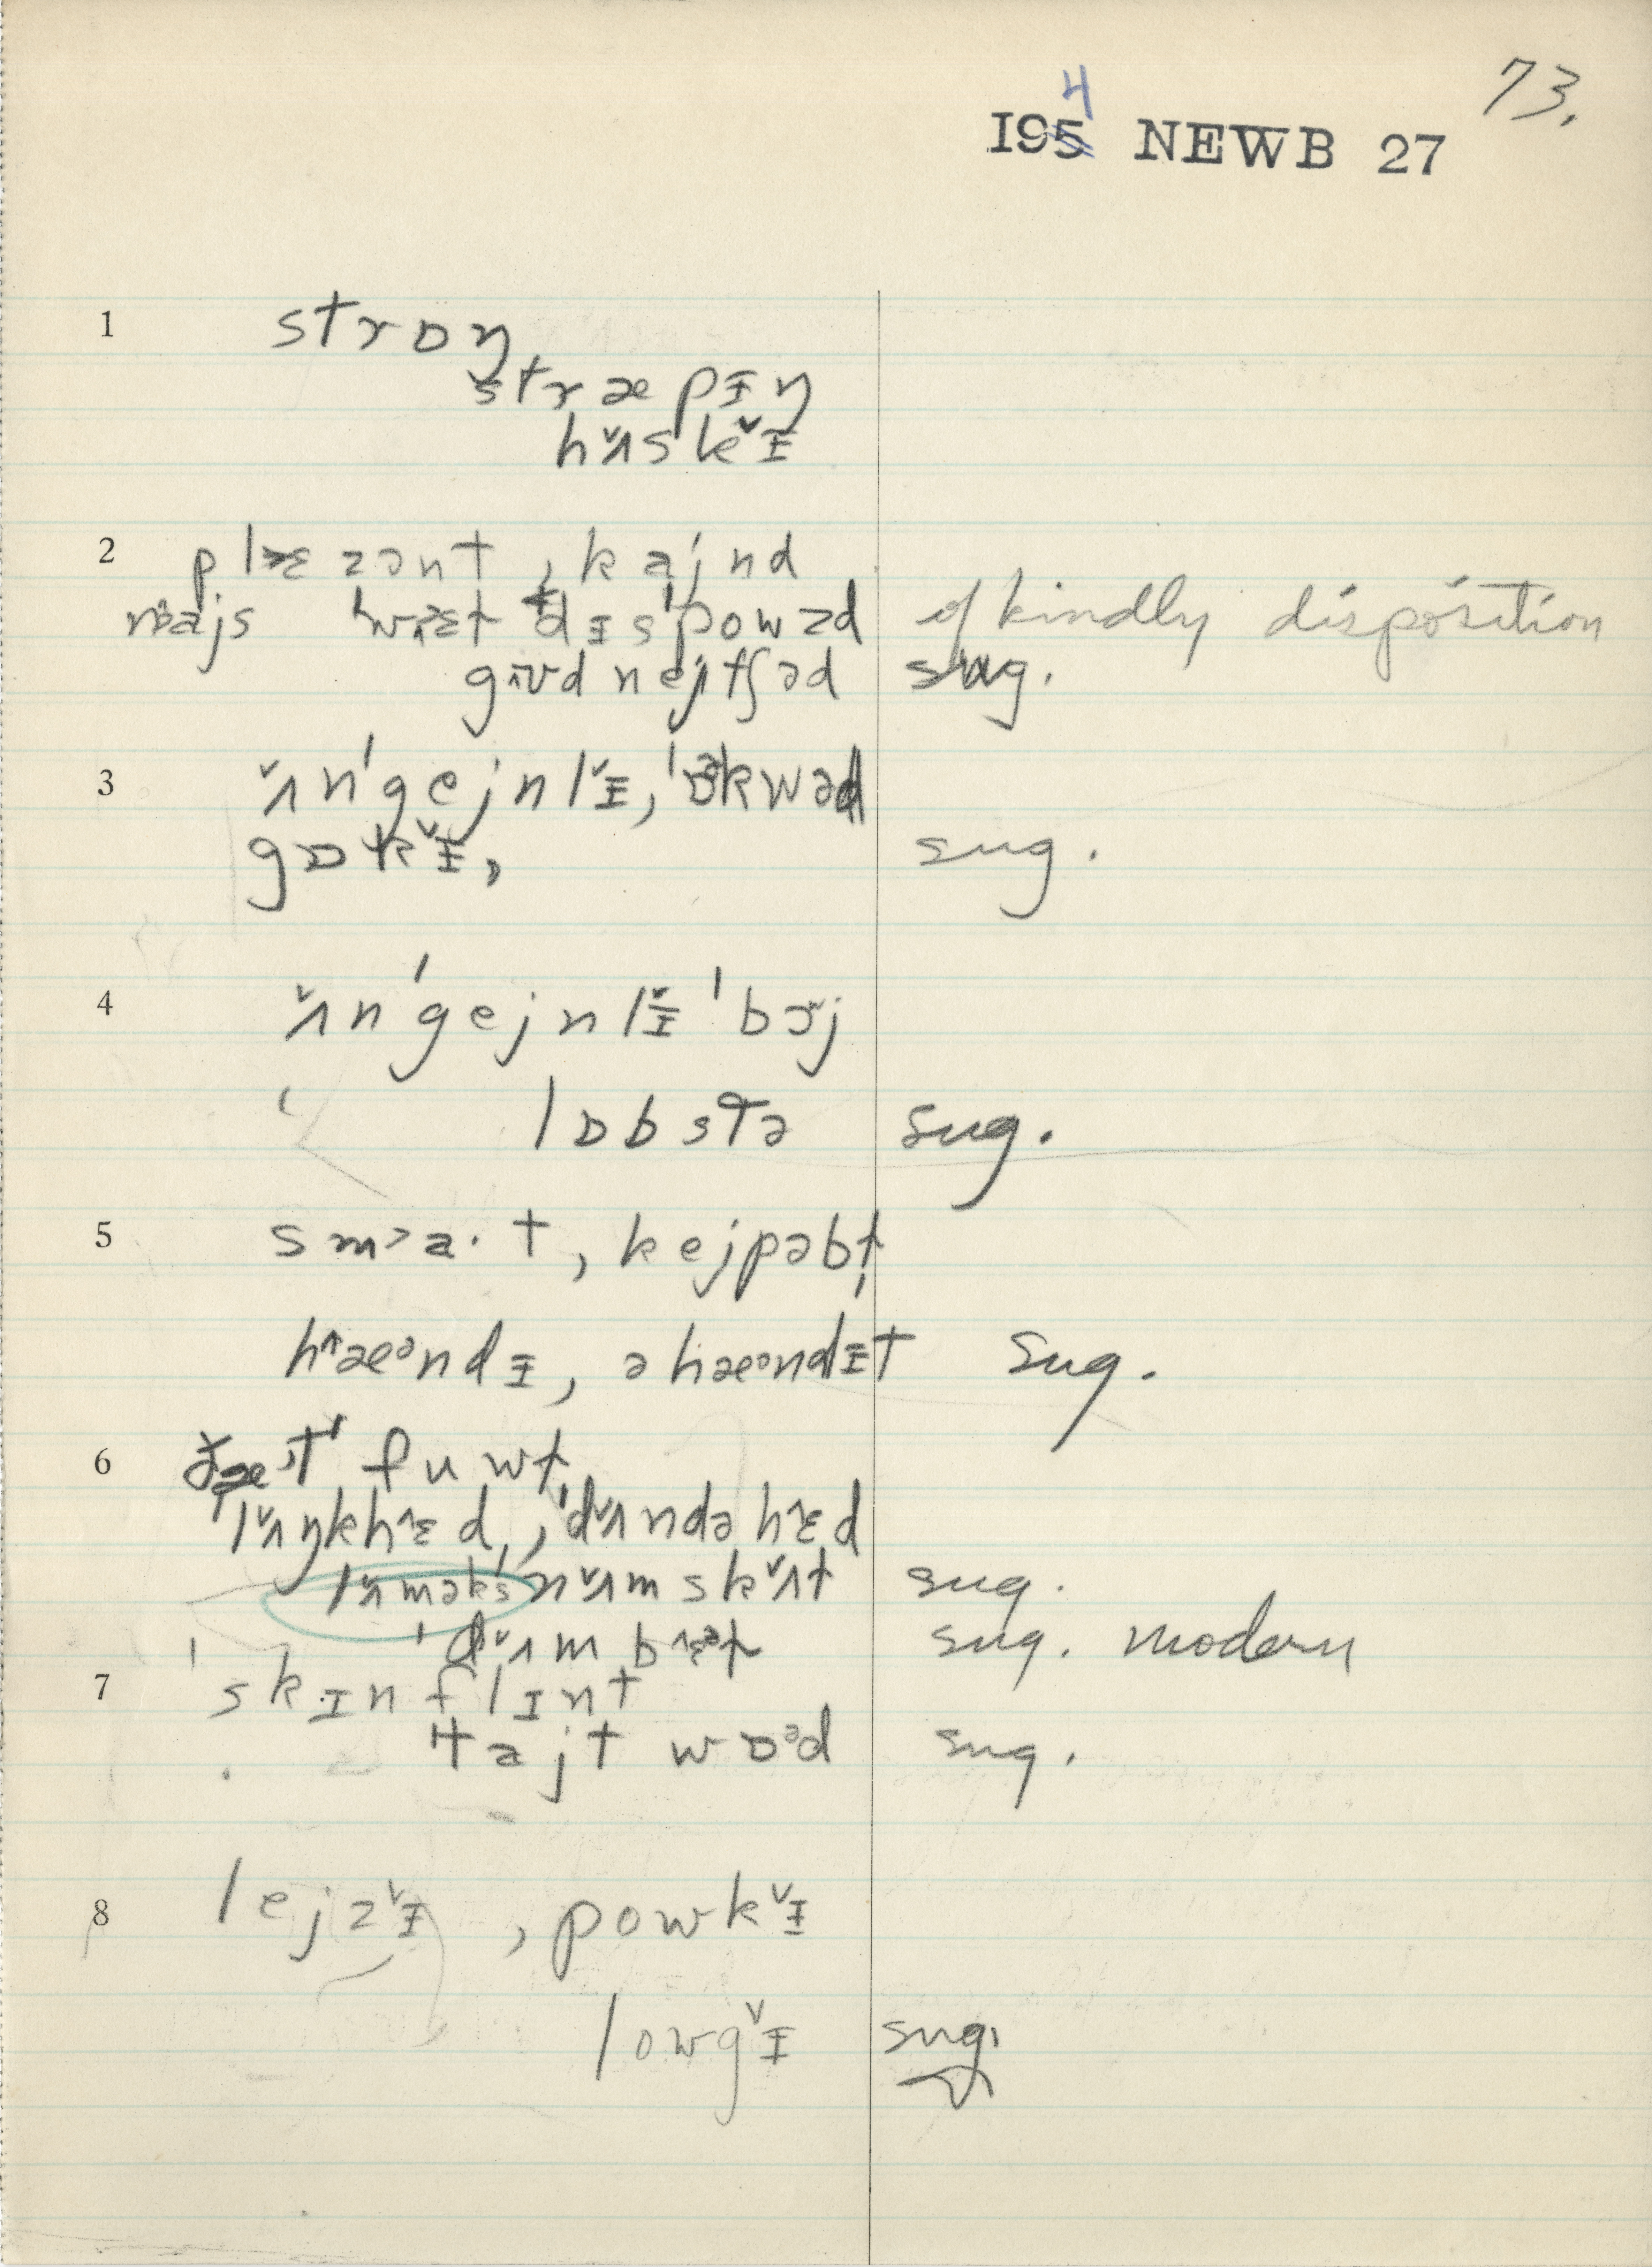 73.
4
195 NEWB 27
1 strɒŋ
stræpɪŋ
hʌ̌skɪ̌
2 plɛzənt, kajnd
najs dɪs'powzd of kindly disposition
gʊd nejtʃəd sug.
3 ʌ̌n'gejnlɪ̌, 'ɒkwəd
gɒkɪ̌, sug.
4 ʌ̌n'gejnlɪ̌ 'bɔj
lɒbstə sug.
5 sm>a·t, kejpəbɫ̩
hæᵊndɪ, əhæᵊndɪt sug.
6 fuwɫ
'lʌ̌ŋkhɛ^d, 'dʌ̌ndəhɛ^d
lʌ̌məks nʌ̌mskʌ̌ɫ sug.
'dʌ̌mbɛɫ sug. modern
7 'skɪnflɪnt
tajt wɒᵊd sug.
8 lejzɪ̌, powkɪ̌
lowgɪ̌ sug.